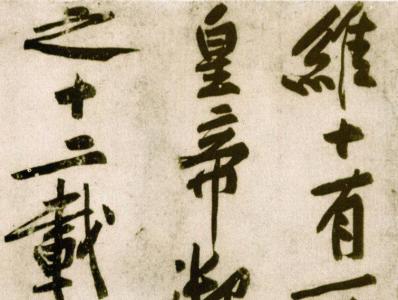 維十有一
皇帝
之十二載